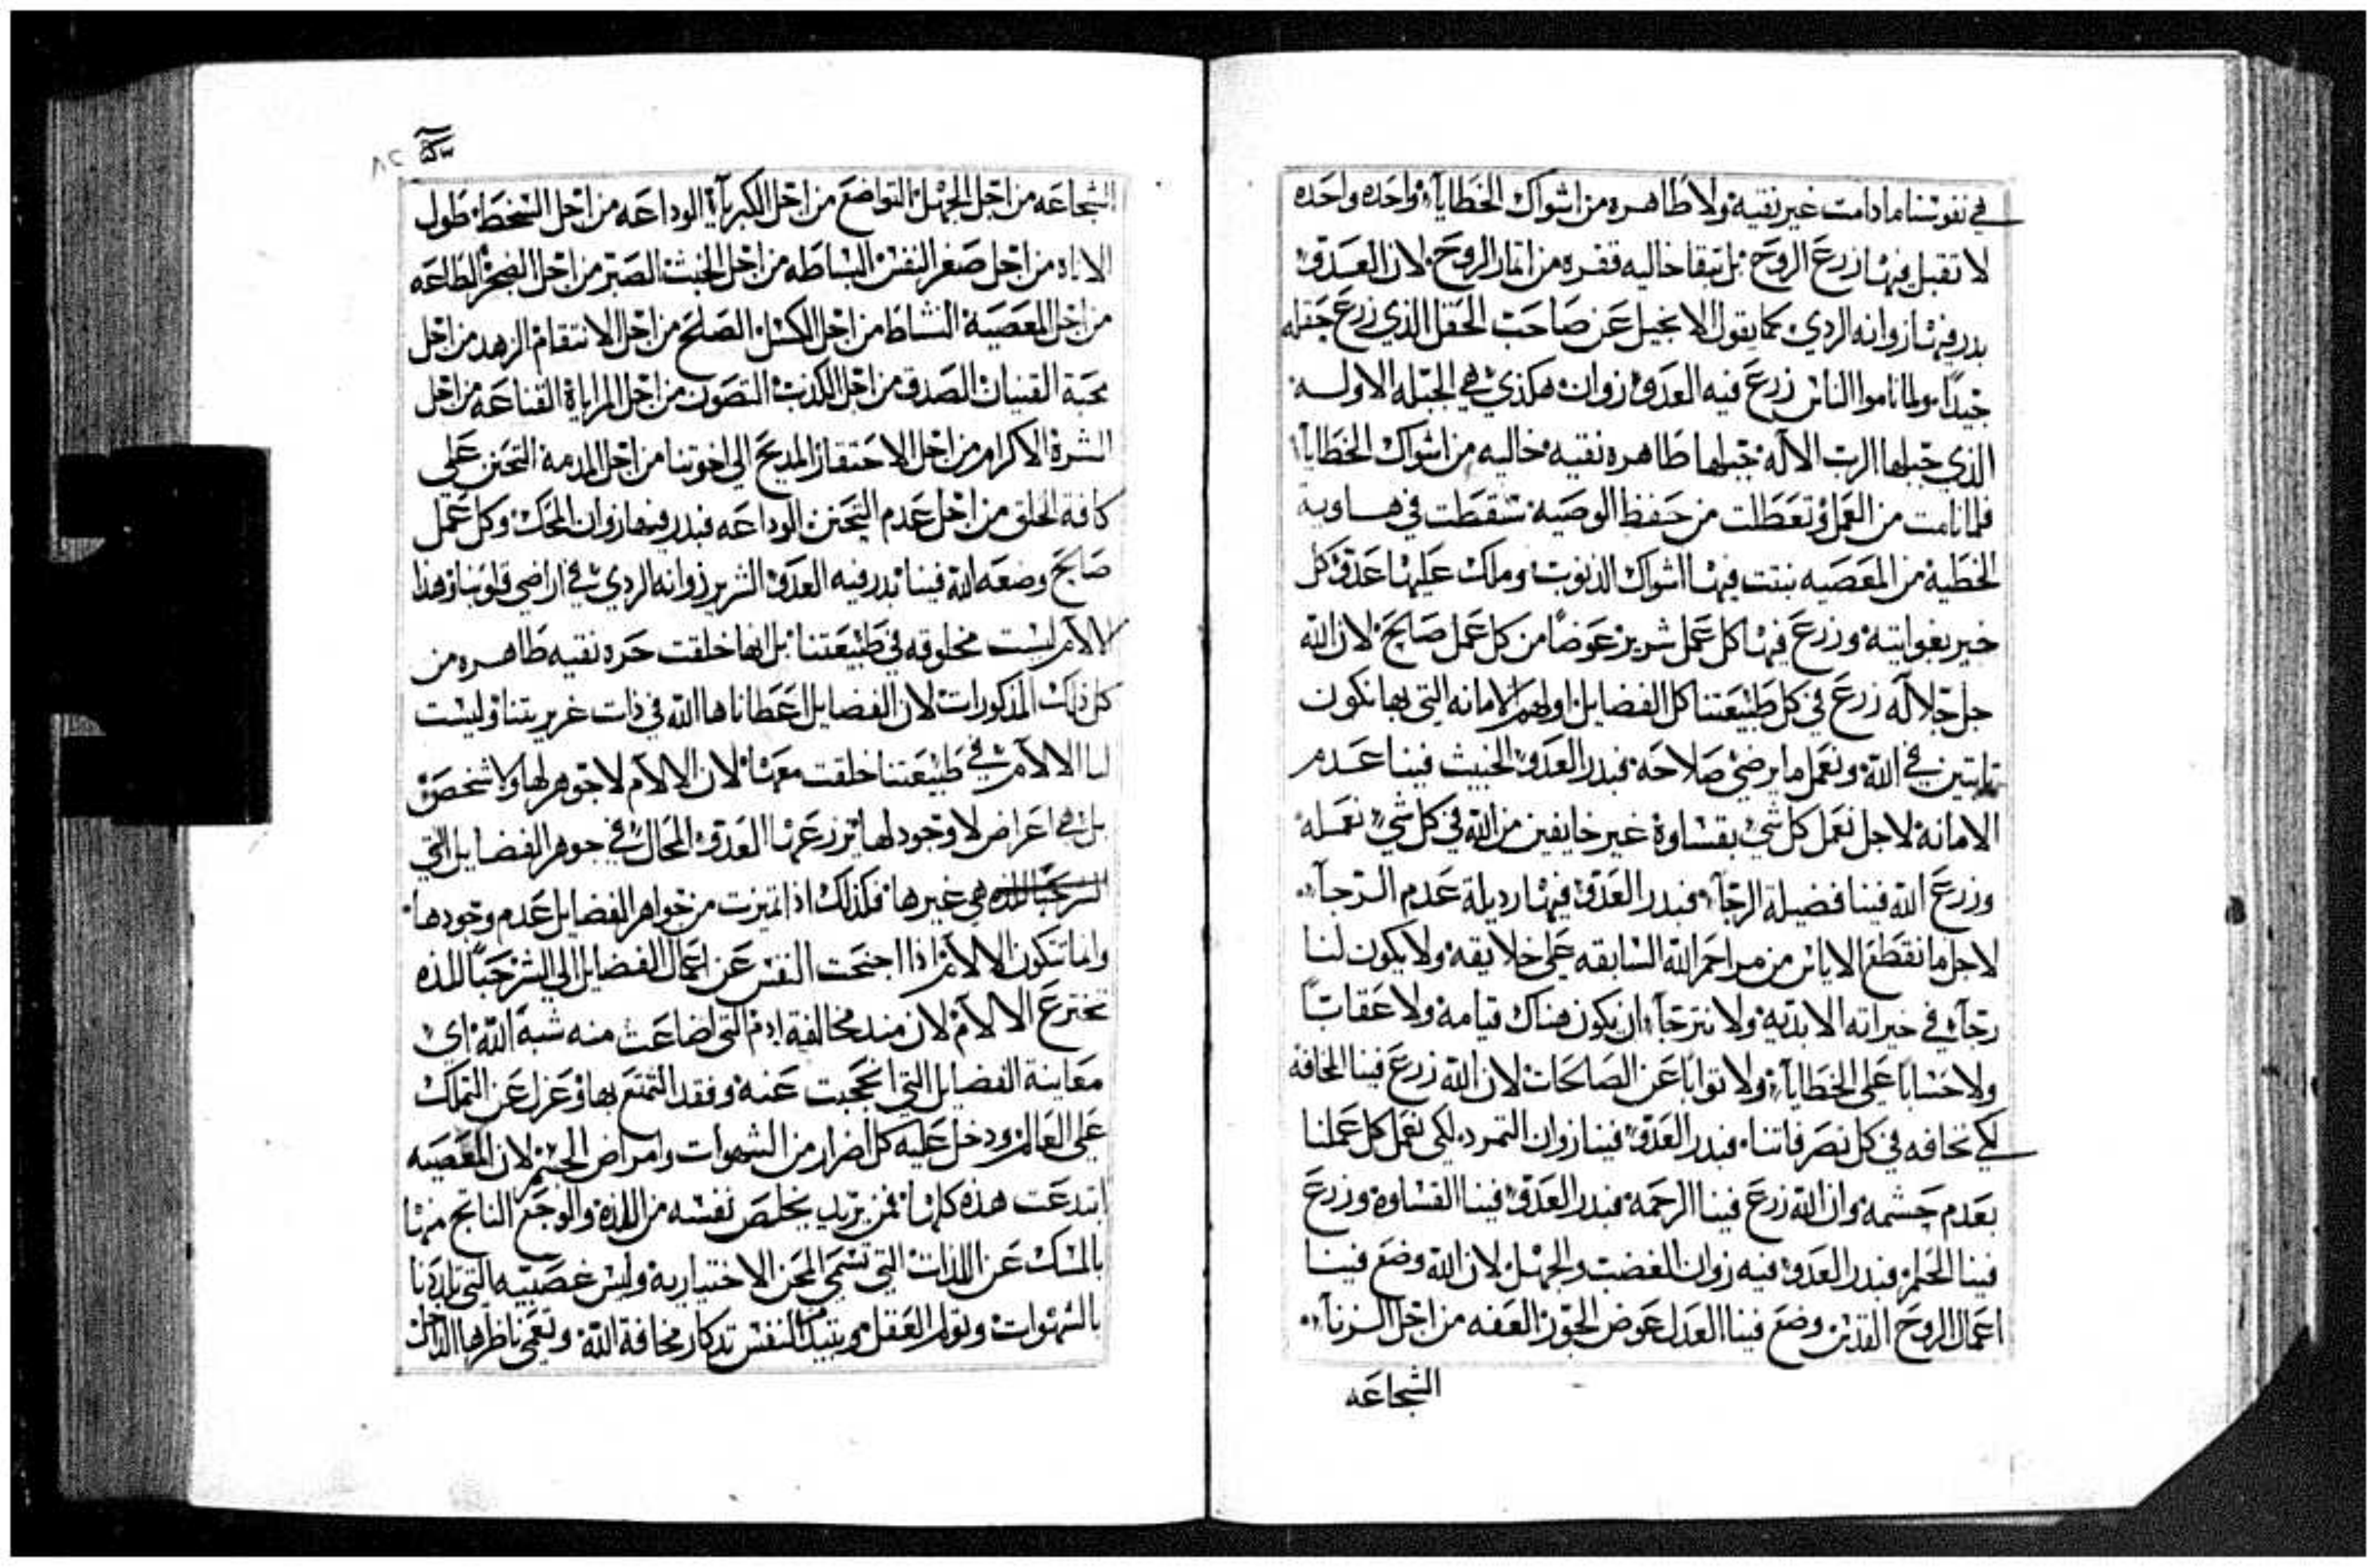 في نفوسنا ما دامت غير نقيه ولا طاهره من اشواك الخطايآء واحده واحده
لا تقبل فيها زرع الروح بل تبقا خاليه قفره من اتمار الروح لان العدو
بدر فيها زوانه الردي كما يقول الانجيل عن صاحب الحقل الذي زرع حقله
جيداً ولما ناموا الناس زرع فيه العدو زوان هكذي هي الجبله الاوله
الذي جبلها الرب الآله جبلها طاهره نقيه خاليه من اشواك الخطايآء
فلما نامت من العمل وتعطلت من حفظ الوصيه سقطت في هاوية
الخطية من المعصيه بنتت فيها اشواك الذنوب وملك عليها عدو كل
خير بغوايته وزرع فيها كل عمل شرير عوضاً من كل عمل صالح لان الله
جل جلاله زرع في كل طبيعتنا كل الفضايل اولهم الامانه التي بها نكون
تابتين في الله ونعمل ما يرضي صلاحه فبدر العدو الخبيث فينا عدم
الامانه لاجل نعمل كل شي بقساوة غير خايفين من الله في كل شي نعمله
وزرع الله فينا فضيلة الرجآء فبدر العدو فيها رديلة عدم الرجآء
لاجل ما نقطع الاياس من مراحم الله السابقه على خلايقه ولا يكون لنا
رجآء في خيراته الابديه ولا نترجآء ان يكون هناك قيامه ولا عقاباً
ولا حساباً على الخطايآء ولا ثواباً عن الصالحات لان الله زرع فينا المخافة
لكي نخافه في كل تصرفاتنا فبدر العدو فينا زوان التمرد لكي نعمل كل عملنا
بعدم حشمه وان الله زرع فينا الرحمه فبدر العدو فينا القساوة وزرع
فينا الحلم فبدر العدو فيه زوان الغضب والجهل لان الله وضع فينا
اعمال الروح القدس وضع فينا العدل عوض الجور العفه من اجل الزنآء
الشجاعه
سكة
٨٢
الشجاعه من اجل الجهل التواضع من اجل الكبريآء الوداعه من اجل السخط طول
الاناه من اجل صغر النفس البساطه من اجل الخبث الصبر من اجل الضجر الطاعه
من اجل المعصية النشاط من اجل الكسل الصلح من اجل الانتقام الزهد من اجل
محبة القنيان الصدق من اجل الكذب التصون من اجل المراياة القناعه من اجل
الشرة الاكرام من اجل الاحتقار المديح الى اخوتنا من اجل المدمة التحنن على
كافة الخلق من اجل عدم التحنن الوداعه فبدر فيها زوان المحك وكل عمل
صالح وضعه الله فينا بدر فيه العدو الشرير زوانه الردي في اراضي قلوبنا وهذا
الالآم ليست مخلوقه في طبيعتنا بل انها خلقت حره نقيه طاهره من
كل ذلك المذكورات لان الفضايل اعطاناها الله في ذات غريزيتنا وليست
لنا الالآم في طبيعتنا خلقت معها لان الالآم لا جوهر لها ولا شخص
بل هي اعراض لا وجود لها زرعها العدو المحال في جوهر الفضايل التي
هي غيرها فكذلك اذا تميزت من جواهر الفضايل عدم وجودها
وانما تتكون الالآم اذا اجنحت النفس عن اعمال الفضايل الى الشر حباً للذه
تخترع الالآم لان مند مخالفة ادم التي اضاعت منه شبه الله اي
معاينة الفضايل التي انحجبت عنه وفقد التمتع بها وعزل عن التملك
على العالم ودخل عليه كل اضرار من الشهوات وامراض الجسم لان المعصيه
ابتدعت هذه كلها فمن يريد يخلص نفسه من اللذه والوجع الناتج منها
بالمسك عن اللذات التي تسمي المحن الاختياريه وليس غصبيه التي تلدنا
بالشهوات وتولم العقل ويتبيد النفس تدكار مخافة الله وتعمي ناظرها الداخل